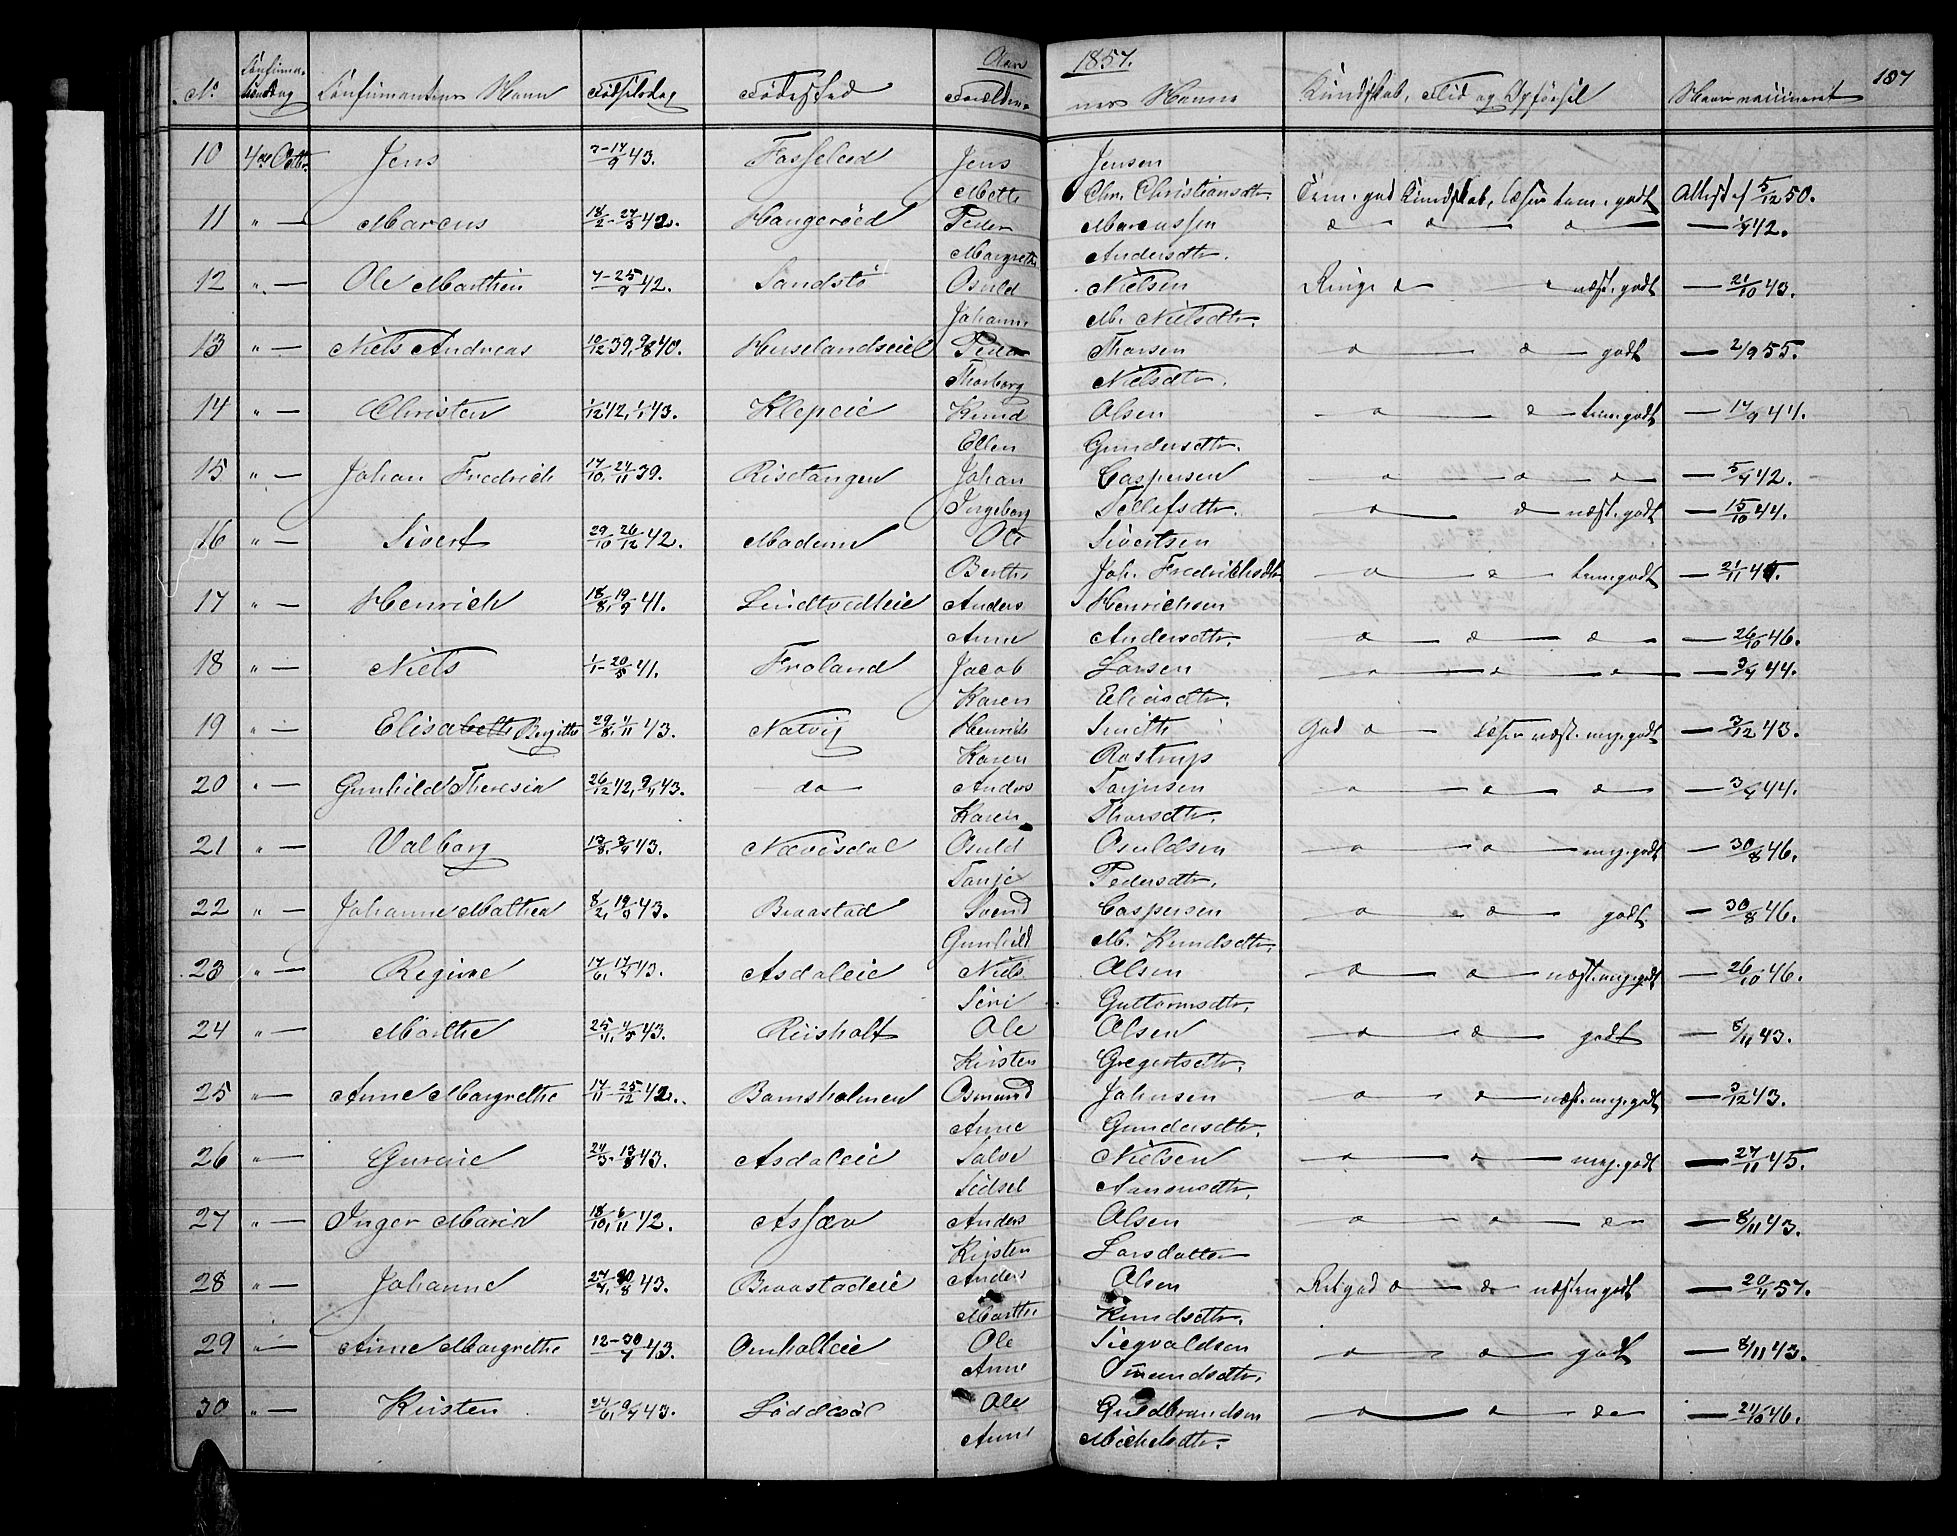 Aar 1857.
187
No Confirmationsdag Confirmantens Navn Fødselsdag Fødested Forældrenes Navne Kundskab, Flid og Opførsel Naar vaccineret
10 4de Octbr. Jens 7-17/9 43. Fosseleed Jens Jensen
Mette Chr. Christiansdtr. Tem. god Kundskab, læser tem. godt Attest f 5/12 50.
11 " — Marcus 18/2-27/3 42. Hangerøed Peder Marcussen
Margrethe Andersdtr.
12 " — Ole Mathin 7-25/9 42. Sandstø Osuld Nielsen Ringe d — næst. godt — 21/10 43.
Johanne M. Nielsdtr.
13 " — Niels Andreas 19/12 39, 9/8 40. Huselandseie Peder Thorsen godt — 2/9 55.
Thorborg Nielsdtr.
14 " — Christen 1/12 42, 1/1 43. Klepeie Knud Olsen tem. godt — 17/9 44.
Ellen Gundersdtr.
15 " — Johan Fredrich 17/10, 24/11 39. Risetangen Johan Caspersen
Ingeborg Tellefsdtr. næst. godt — 15/10 44.
16 " — Sivert 29/10 26/12 42. Madem Ole Sivertsen
Berthe Joh. Fredrichsdtr tem. godt
17 " — Henrich 18/8, 19/9 41. Lindtvedteie Anders Henrichsen
Anne Andersdtr. — 26/10 46.
18 " — Niels 1/1-20/5 41. Froland Jacob Larsen
Karen Eliasdtr.
19 " — Elisabeth Birgitte 29/8, 4/11 43. Natvig Henrik Smith God d — læser næst. meg. godt — 3/12 43.
Karen Aastrup
20 " — Gunhild Theresia 26/12 42, 9/4 43. — do — Anders Torjusen
Karen Thorsdtr.
21 " — Valborg 13/8, 3/9 43. Nævisdal Osuld Osuldsen meg. godt — 30/8 46.
Tonje Pedersdtr.
22 " — Johanne Mathea 8/2, 19/9 43. Braastad Svend Caspersen godt — 30/8 46.
Gunhild M. Knudsdtr.
23 " — Regine 17/6, 17/7 43. Asdaleie Niels Olsen næst. meg. godt — 26/10 46.
Siri Guttormsdtr.
24 " — Marthe Riisholt Ole Olsen godt — 8/11 43.
Kirsten Gregertsdtr.
25 " — Anne Margrethe 17/11 25/12 42. Bomsholmen Osmund Johnsen næst. meg. godt — 3/12 43.
Anne Gundersdtr.
26 " — Gurine 24/3, 13/8 43. Asdaleie Salve Nielsen meg. godt — 27/11 45.
Sidsel Aanonsdtr.
27 " — Inger Maria 18/10, 6/11 42. Assæv Anders Olsen — 8/11 43.
Kirsten Larsdatter
28 " — Johanne Braastadeie Anders Olsen næsten godt — 20/4 57.
Marthe Knudsdtr.
29 " — Anne Margrethe 12-30/7 43. Omholteie Ole Siegvaldsen godt — 8/11 43.
Anne Omundsdtr.
30 " — Kirsten 24/6, 9/7 43. Løddesøl Ole Guldbrandsen
Anne Michelsdtr.